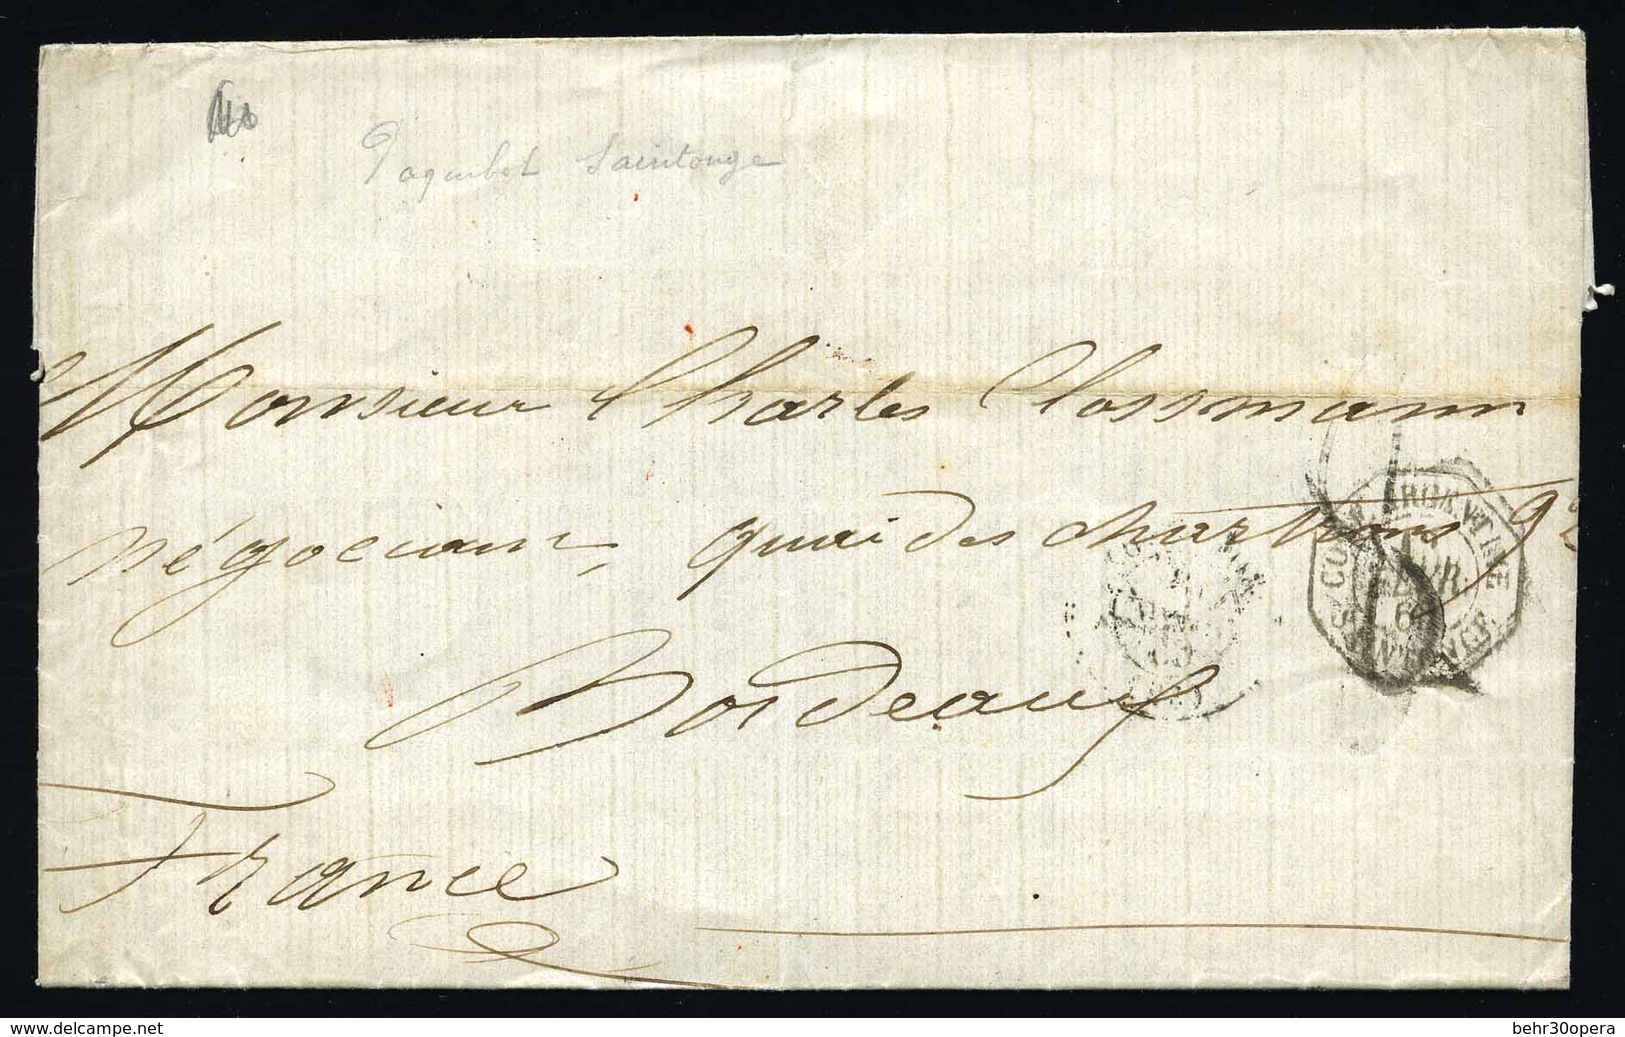 Paquebot Saintonge
Monsieur Charles Clossmann
négociant, quai des chartrons 92
Bordeaux
France
CONF. ARGENTINE
AVR.
6
SAINTONGE
delcampe.net
behr30opera